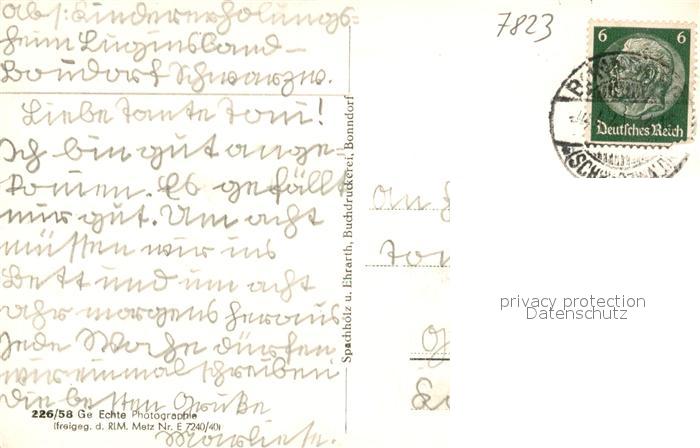 Abs: Kindererholungs=
heim Luginsland –
Bondorf Schwarzw.
Liebe Tante Toni!
Ich bin gut ange-
komen. Es gefällt
mir gut. Um acht
müssen wir ins
Bett und um acht
uhr morgens heraus
Jede Woche dürfen
wir einmal schreiben
Die besten Grüße
Marliese.
226/58 Ge Echte Photographie
(freigeg. d. RLM. Metz Nr. E 7240/40)
Spachholz u. Ehrarth, Buchdruckerei, Bonndorf
7823
6 6
Deutsches Reich
(SCHWARZWALD)
An
Ton
privacy protection
Datenschutz